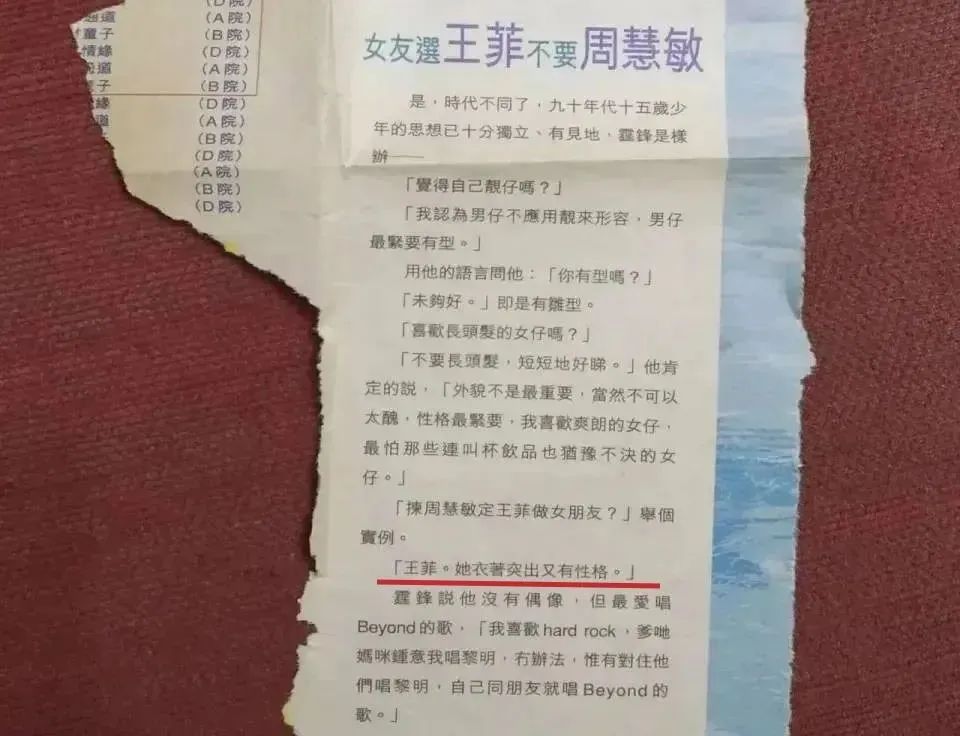 (D院)
(A院)
童子 (B院)
情緣 (D院)
道 (A院)
子 (B院)
緣 (D院)
道 (A院)
(B院)
(D院)
(A院)
(B院)
(D院)
女友選王菲不要周慧敏
是，時代不同了，九十年代十五歲少
年的思想已十分獨立、有見地，霆鋒是樣
辦——
「覺得自己靚仔嗎？」
「我認為男仔不應用靚來形容，男仔
最緊要有型。」
用他的語言問他：「你有型嗎？」
「未夠好。」即是有雛型。
「喜歡長頭髮的女仔嗎？」
「不要長頭髮，短短地好睇。」他肯
定的說，「外貌不是最重要，當然不可以
太醜，性格最緊要，我喜歡爽朗的女仔，
最怕那些連叫杯飲品也猶豫不決的女
仔。」
「揀周慧敏定王菲做女朋友？」舉個
實例。
「王菲。她衣著突出又有性格。」
霆鋒說他沒有偶像，但最愛唱
Beyond的歌，「我喜歡hard rock，爹哋
媽咪鍾意我唱黎明，冇辦法，惟有對住他
們唱黎明，自己同朋友就唱Beyond的
歌。」